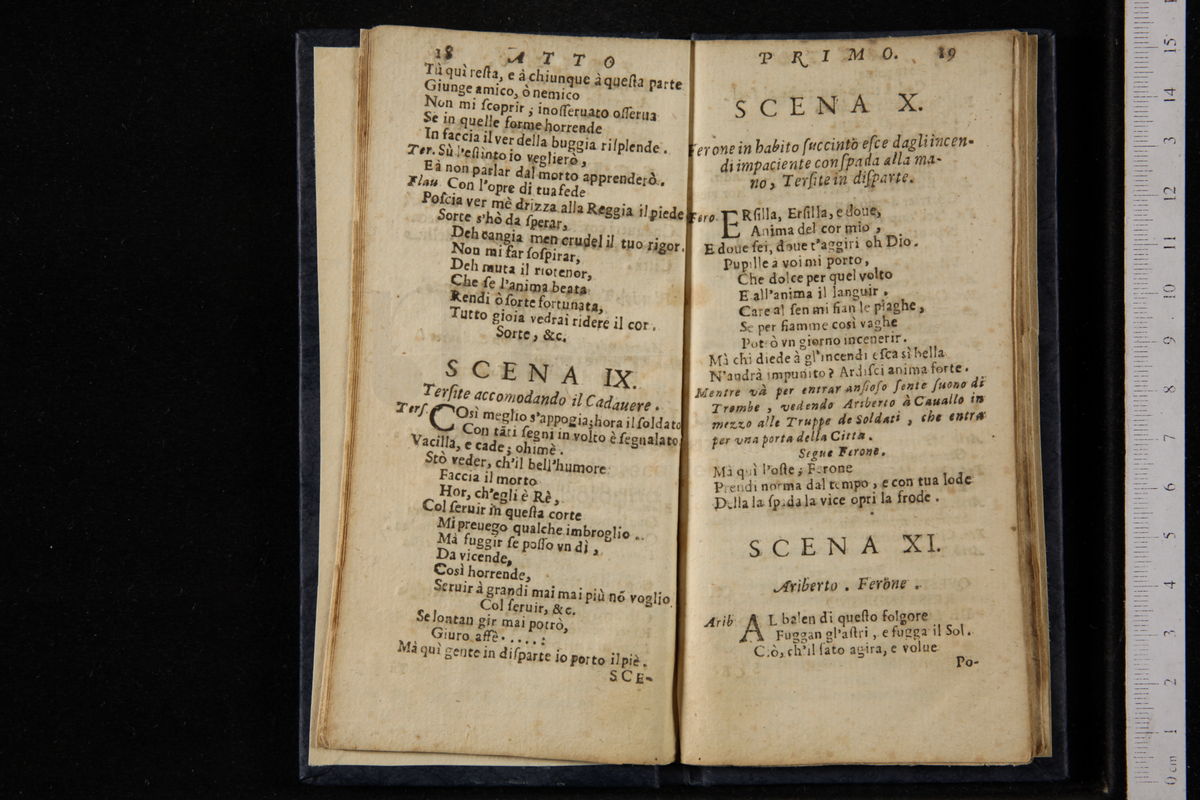 18 ATTO
Tù quì resta, e à chiunque à questa parte
Giunge amico, ò nemico
Non mi scoprir; inosseruato osserua
Se in quelle forme horrende
In faccia il ver della buggia risplende.
Ter. Sù l'estinto io veglierò,
Eà non parlar dal morto apprenderò.
Flau. Con l'opre di tua fede
Poscia ver mè drizza alla Reggia il piede
Sorte s'hò da sperar,
Deh cangia men crudel il tuo rigor.
Non mi far sospirar,
Deh muta il rio tenor,
Che se l'anima beata
Rendi ò sorte fortunata,
Tutto gioia vedrai ridere il cor.
Sorte, &c.
SCENA IX.
Tersite accomodando il Cadauere.
Ters. COsì meglio s'appogia; hora il soldato
Con tãti segni in volto è segnalato
Vacilla, e cade; ohimè.
Stò veder, ch'il bell'humore
Faccia il morto
Hor, ch'egli è Rè,
Col seruir in questa corte
Mi preuego qualche imbroglio.
Mà fuggir se posso vn dì,
Da vicende,
Così horrende,
Seruir à grandi mai mai più nõ voglio
Col seruir, &c.
Se lontan gir mai potrò,
Giuro affè.....:
Mà quì gente in disparte io porto il piè.
SCE-
PRIMO. 19
SCENA X.
Ferone in habito succinto esce dagli incen-
di impaciente con spada alla ma-
no, Tersite in disparte.
Fero. ERsilla, Ersilla, e doue,
Anima del cor mio,
E doue sei, doue t'aggiri oh Dio.
Pupille a voi mi porto,
Che dolce per quel volto
E all'anima il languir.
Care al sen mi sian le piaghe,
Se per fiamme così vaghe
Potrò vn giorno incenerir.
Mà chi diede à gl'incendi esca sì bella
N'andrà impunito? Ardisci anima forte.
Mentre và per entrar ansioso sente suono di
Trombe, vedendo Ariberto à Cauallo in
mezzo alle Truppe de Soldati, che entra
per vna porta della Citta.
Segue Ferone.
Mà quì l'oste; Ferone
Prendi norma dal tempo, e con tua lode
Della la spada la vice opri la frode.
SCENA XI.
Ariberto. Ferone.
Arib AL balen di questo folgore
Fuggan gl'astri, e fugga il Sol.
Ciò, ch'il fato agira, e volue
Po-